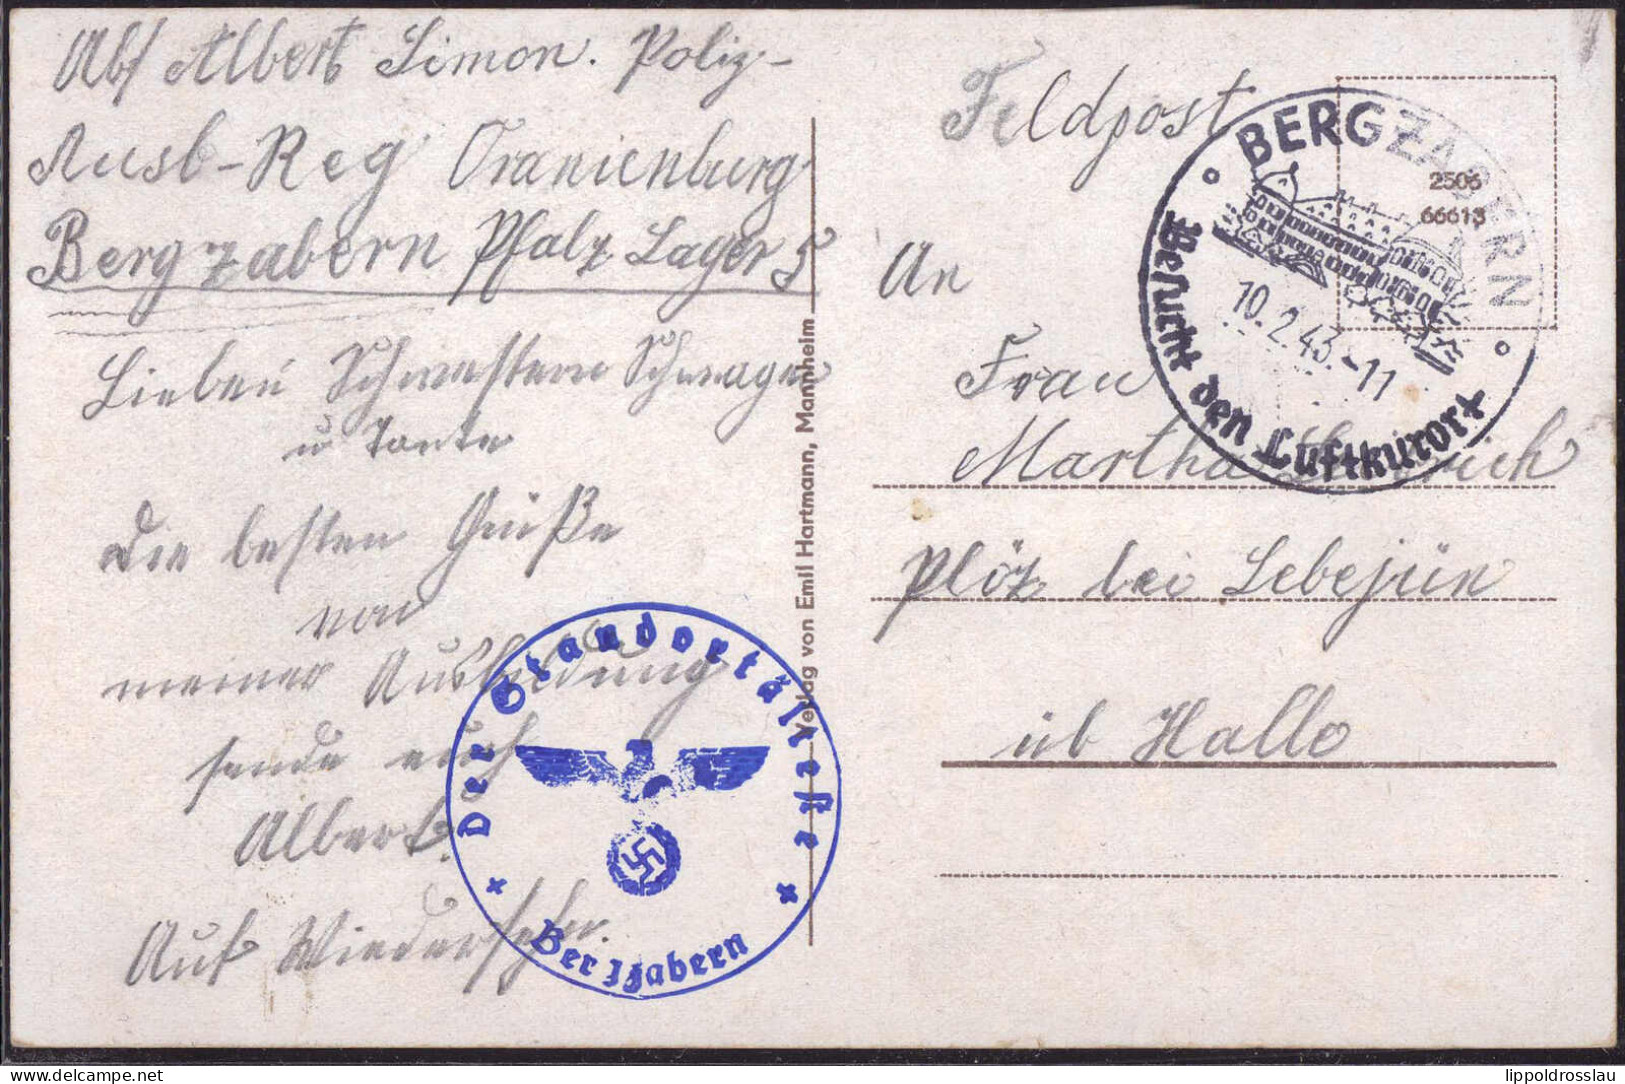 Abs Albert Simon. Poliz-
Ausb-Reg Oranienburg
Bergzabern Pfalz Lager 5
Lieben Schwestern Schwager
u Tante
Die besten Grüße
von
meiner Ausbildung
sende euch
Albert.
Auf Wiedersehn.
Der Standortälteste
Bergzabern
Verlag von Emil Hartmann, Mannheim
Feldpost
BERGZABERN
2506
66613
10.2.43.-11
Besucht den Luftkurort
An
Frau
Martha
Plöz bei Lebejün
üb Halle
lippoldrosslau